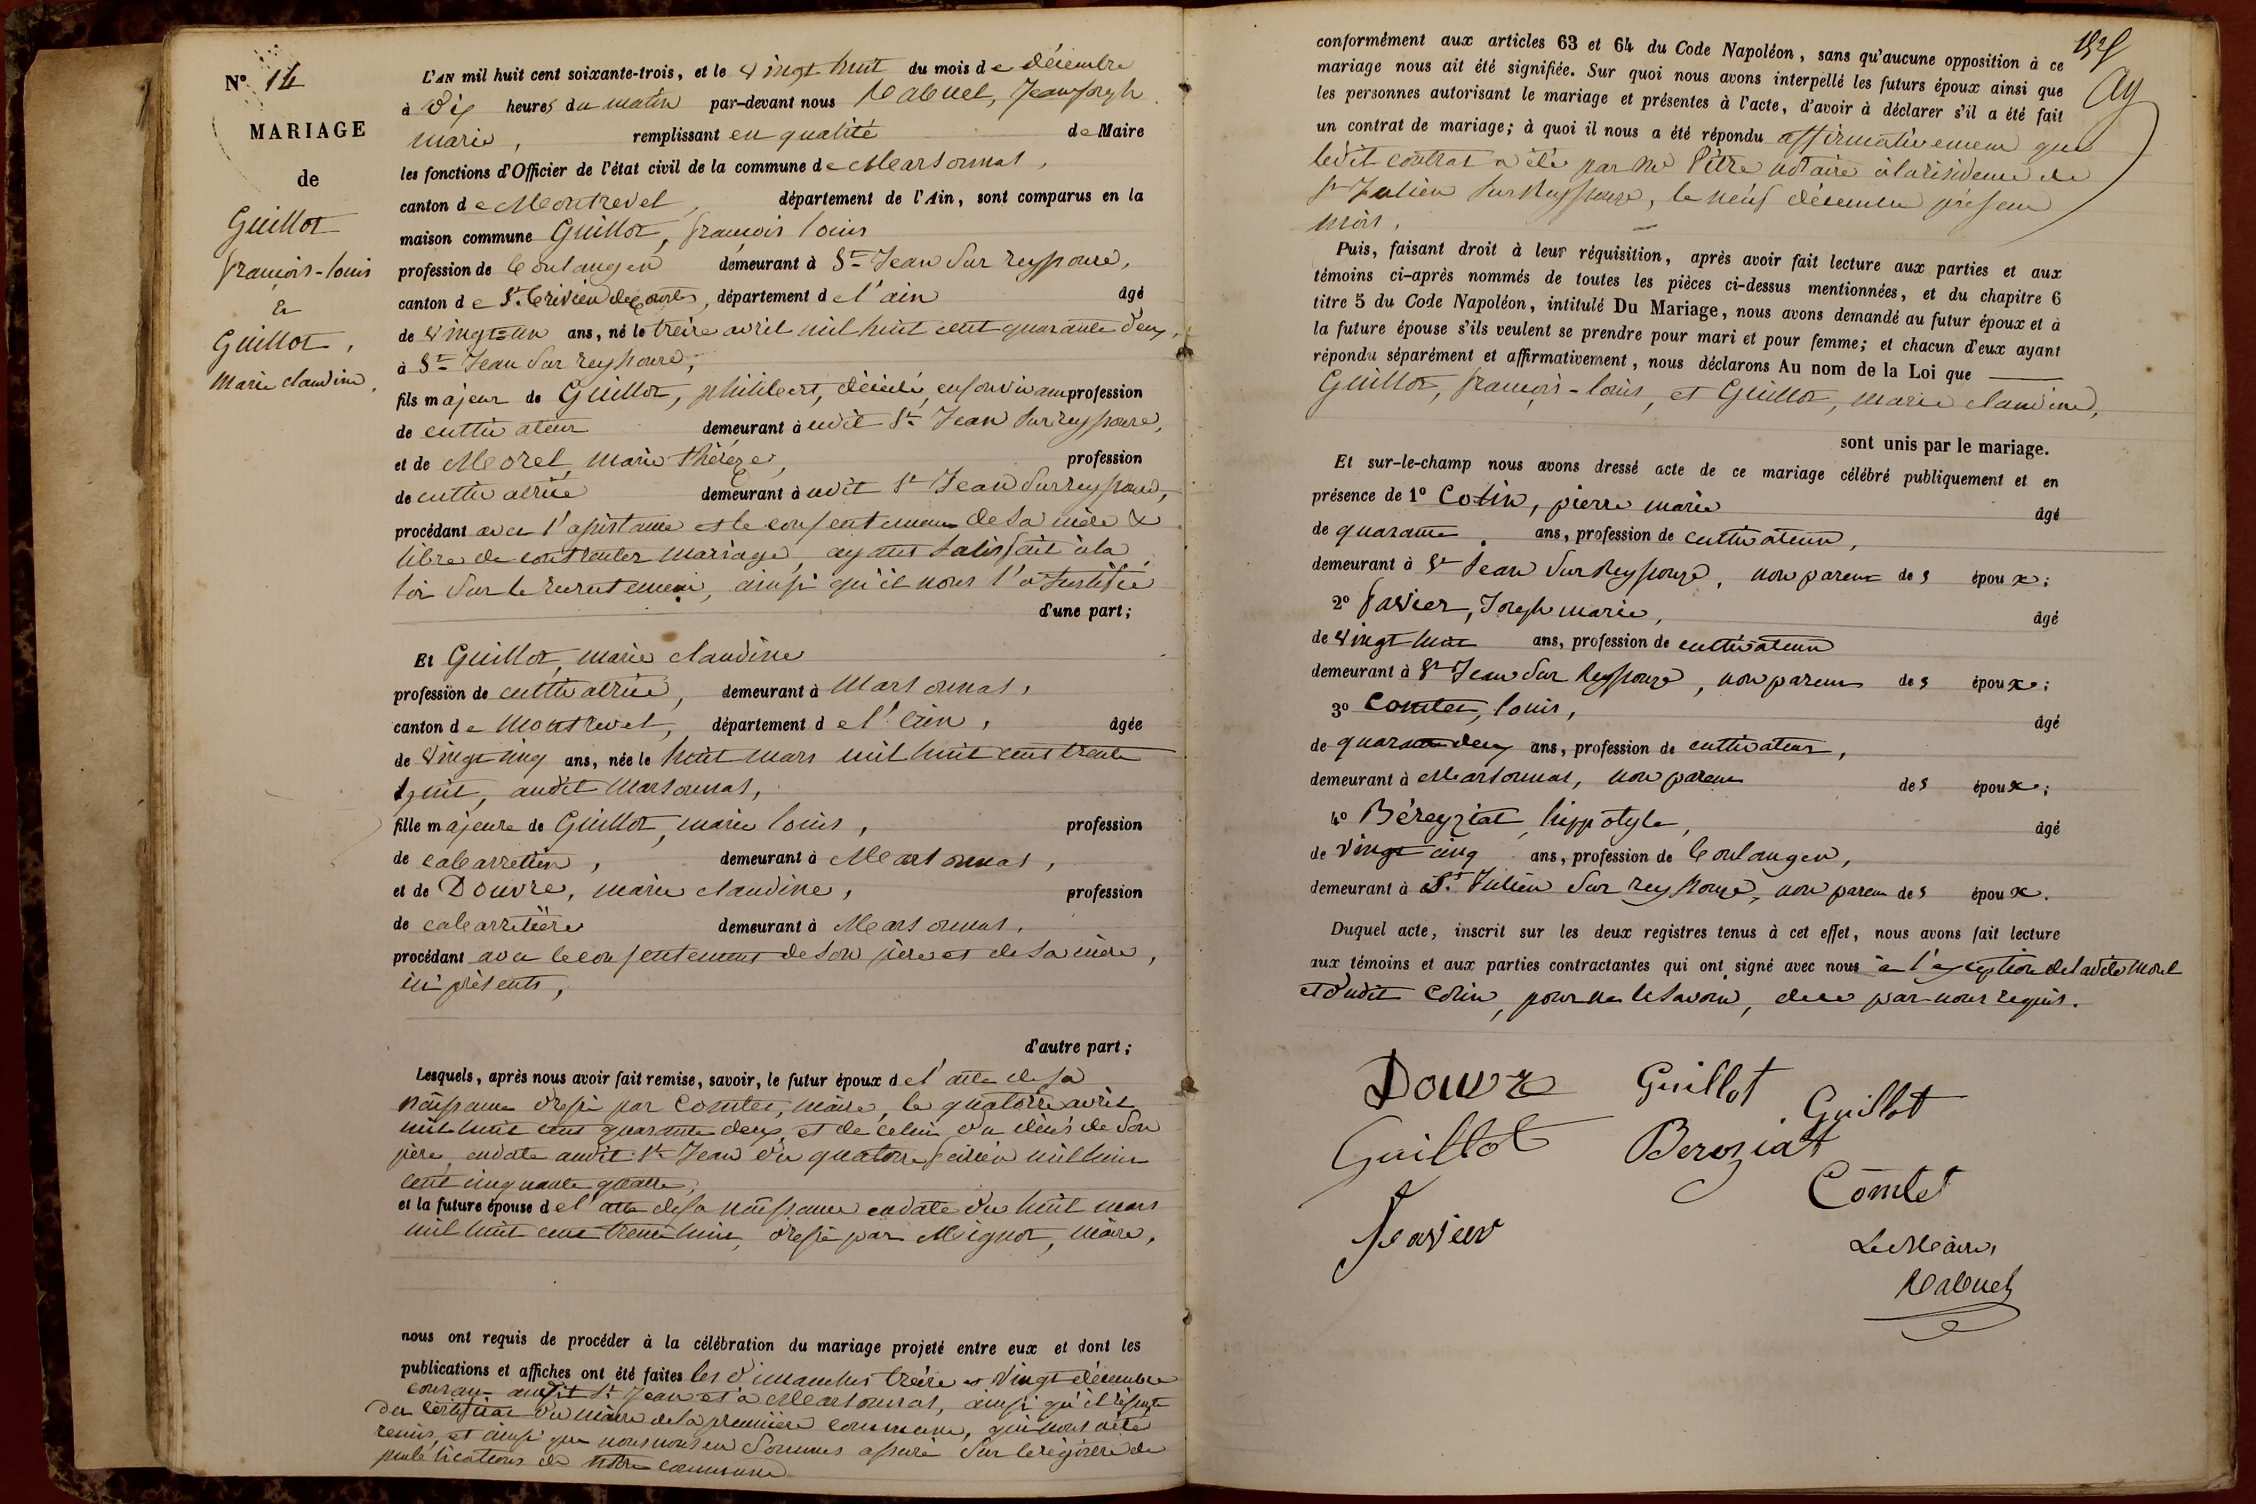 N° 14
MARIAGE
de
Guillot
françois-louis
&
Guillot,
Marie claudine,
L'AN mil huit cent soixante-trois, et le vingt huit du mois de décembre
à dix heures du matin par-devant nous Rabuel, Jean joseph
marie, remplissant en qualité de Maire
les fonctions d'Officier de l'état civil de la commune de Marsonnas,
canton de Montrevel, département de l'Ain, sont comparus en la
maison commune Guillot, françois louis
profession de boulanger demeurant à St Jean sur reyssouze,
canton de St. trivier de Courtes, département de l'ain âgé
de vingt-un ans, né le treize avril mil huit cent quarante deux,
à St Jean sur reyssouze,
fils majeur de Guillot, philibert, décédé, en son vivant profession
de cultivateur demeurant à udit St Jean sur reyssouze,
et de Morel, marie thérèze, profession
de cultivatrice demeurant à udit St Jean sur reyssouze,
procédant avec l'assistance et le consentement de sa mère &
libre de contracter mariage, ayant satisfait à la
loi sur le recrutement, ainsi qu'il nous l'a justifié
d'une part;
Et Guillot, marie claudine
profession de cultivatrice, demeurant à Marsonnas,
canton de Montrevel, département de l'ain, âgée
de vingt cinq ans, née le huit mars mil huit cent trente
huit, audit Marsonnas,
fille majeure de Guillot, marie louis, profession
de cabarettier, demeurant à Marsonnas,
et de Douvre, marie claudine, profession
de cabarretière demeurant à Marsonnas,
procédant avec le consentement de son père et de sa mère,
ici présents,
d'autre part;
Lesquels, après nous avoir fait remise, savoir, le futur époux de l'acte de sa
naissance dressé par Comtet, maire, le quatorze avril
mil huit cent quarante deux, et de celui du décès de son
père, en date audit St Jean du quatorze février mil huit
cent cinquante quatre,
et la future épouse de l'acte de sa naissance en date du huit mars
mil huit cent trente huit, dressé par Mignot, maire,
nous ont requis de procéder à la célébration du mariage projeté entre eux et dont les
publications et affiches ont été faites les dimanches treize et vingt décembre
courant audit St Jean et à Marsonnas, ainsi qu'il résulte
du certificat du maire de la première commune, qui nous a été
remis, et ainsi que nous nous en sommes assuré sur le régistre de
publications de notre commune
conformément aux articles 63 et 64 du Code Napoléon, sans qu'aucune opposition à ce
mariage nous ait été signifiée. Sur quoi nous avons interpellé les futurs époux ainsi que
les personnes autorisant le mariage et présentes à l'acte, d'avoir à déclarer s'il a été fait
un contrat de mariage; à quoi il nous a été répondu affirmativement que
ledit contrat a été par me Pitre notaire à la résidence de
St Julien sur Reyssouze, le neuf décembre présent
mois.
Puis, faisant droit à leur réquisition, après avoir fait lecture aux parties et aux
témoins ci-après nommés de toutes les pièces ci-dessus mentionnées, et du chapitre 6
titre 5 du Code Napoléon, intitulé Du Mariage, nous avons demandé au futur époux et à
la future épouse s'ils veulent se prendre pour mari et pour femme; et chacun d'eux ayant
répondu séparément et affirmativement, nous déclarons Au nom de la Loi que
Guillot, françois-louis, et Guillot, marie claudine,
sont unis par le mariage.
Et sur-le-champ nous avons dressé acte de ce mariage célébré publiquement et en
présence de 1° Colin, pierre marie âgé
de quarante ans, profession de cultivateur,
demeurant à St Jean sur Reyssouze, non parent des époux;
2° favier, Joseph marie, âgé
de vingt huit ans, profession de cultivateur
demeurant à St Jean sur Reyssouze, non parent des époux;
3° Comtet, louis, âgé
de quarante deux ans, profession de cultivateur,
demeurant à Marsonnas, non parent des époux;
4° Béreyziat, hippolyte, âgé
de vingt cinq ans, profession de boulanger,
demeurant à St. Julien sur reyssouze, non parent des époux.
Duquel acte, inscrit sur les deux registres tenus à cet effet, nous avons fait lecture
aux témoins et aux parties contractantes qui ont signé avec nous à l'exception de ladite Morel
et dudit Colin, pour ne le savoir, de ce par nous requis.
Douvre
Guillot
Guillot
Guillot
Bereziat
Comtet
favier
Le Maire,
Rabuel